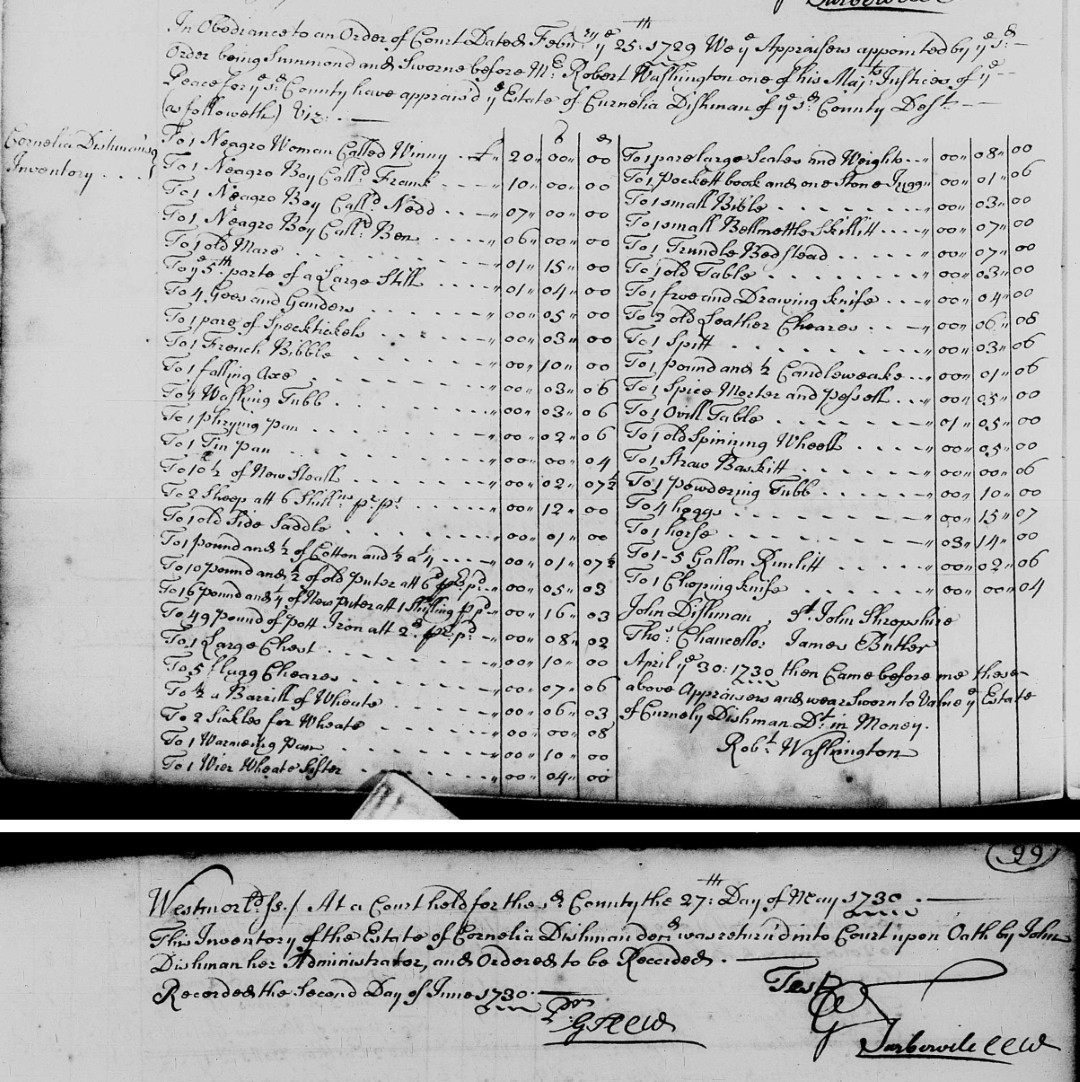 In Obediance to an Order of Court Dated Febry. ye 25th: 1729 We ye Appraisers appointed by ye sd:
Order being Summond and Sworne before Mr Robert Washington one of his Majts Justices of ye
Peace for ye sd: County have apprais'd ye Estate of Curnelia Dishman of ye sd: County Desd
(as followeth) Viz:
Cornelia Dishman's
Inventory
To 1 Neagro Woman Called Winny £ 20 00 00
To 1 Neagro Boy Calld: Frank 10 00 00
To 1 Neagro Boy Calld Nedd 07 00 00
To 1 Neagro Boy Calld: Ben 06 00 00
To 1 old Mare 01 15 00
To ye 5th parte of a Large Still 01 04 00
To 4 Gees and Ganders 00 05 00
To 1 pare of Specktickels 00 03 00
To 1 French Bibble 00 10 00
To 1 falling Axe 00 03 06
To 4 Washing Tubb 00 03 06
To 1 phrying pan 00 02 06
To 1 Tin pan 00 00 04
To 10 ½ of New Steall 00 02 07½
To 2 Sheep att 6 Shillns pr. ps 00 12 00
To 1 old Side Saddle 00 01 00
To 1 pound and ½ of Cotton and ½ a ¼ 00 01 07½
To 10 pound and ½ of old Puter att 6d pr. pd. 00 05 03
To 16 pound and ¼ of New puter att 1 Shilling pr pd 00 16 03
To 49 pound of pott Iron att 2d pr. pd. 00 08 02
To 1 Large Chest 00 10 00
To 5 flagg Cheares 00 07 06
To ½ a Barrill of Wheate 00 06 03
To 2 Sickles for Wheate 00 00 08
To 1 Warmeing pan 00 10 00
To 1 Wier Wheate Sifter 00 04 00
To 1 pare large Scales and Weights 00 08 00
To 1 pockett book and one Stone Jugg 00 01 06
To 1 small Bible 00 03 00
To 1 small Bellmettle Skillitt 00 07 00
To 1 Trundle Bedstead 00 07 00
To 1 old Table 00 03 00
To 1 froe and Drawing knife 00 04 00
To 2 old Leather Cheares 00 06 08
To 1 Spitt 00 03 06
To 1 pound and ½ Candleweake 00 01 06
To 1 Spice Morter and pessell 00 05 00
To 1 Ovill Table 01 05 00
To 1 old Spinning Wheell 00 05 00
To 1 Straw Baskitt 00 00 06
To 1 powdering Tubb 00 10 00
To 4 hoggs 00 15 07
To 1 horse 03 14 00
To 1 - 5 Gallon Runlitt 00 02 06
To 1 Choping knife 00 00 04
John Dishman, St. John Shropshire
Thos. Chancellor James Butler
April ye 30: 1730 then Came before me these
above Appraisers and wear Sworn to Value ye Estate
of Curnely Dishman Dt. in Money.
Robt. Washington
99
Westmorld. ss./ At a Court held for the sd. County the 27th: Day of May 1730.
This Inventory of the Estate of Cornelia Dishman decd was return'd into Court upon Oath by John
Dishman her Administrator, and Ordered to be Recorded.
Recorded the Second Day of June 1730.
Test
Turbervile CCW